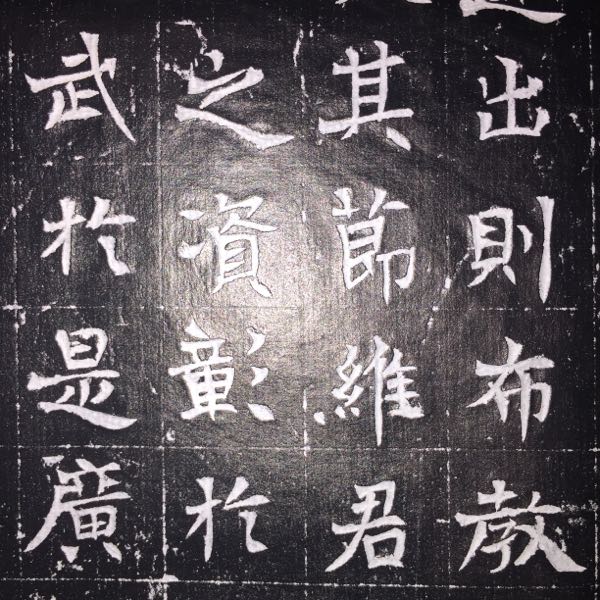 出則布教
其節維君
之資彰於
武於是廣